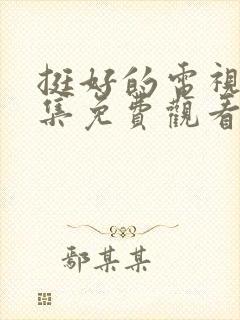 挺好的電視
集免費觀看
鄢某某